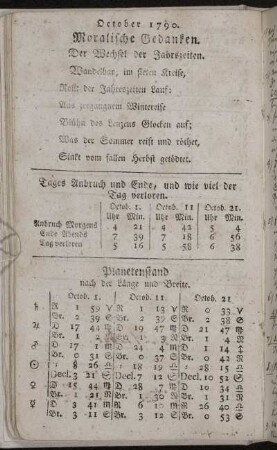 October 1790.
Moralische Gedanken.
Der Wechsel der Jahrszeiten.
Wandelbar, im steten Kreise,
Rollt der Jahreszeiten Lauf:
Aus zergangnem Wintereise
Blühn des Lenzens Glocken auf;
Was der Sommer reift und röthet,
Sinkt vom falben Herbst getödtet.
Tages Anbruch und Ende, und wie viel der
Tag verloren.
Octob. 1. Octob. 11 Octob. 21.
Uhr Min. Uhr Min. Uhr Min.
Anbruch Morgens 4 21 4 42 5 4
Ende Abends 7 39 7 18 6 56
Tag verloren 5 16 5 58 6 38
Planetenstand
nach der Länge und Breite.
Octob. 1. Octob. 11 Octob. 21
♄ R 1 59 V R 1 13 V R 0 33 V
Br. 2 39 S Br. 2 39 S Br. 2 38 S
♃ D 17 44 ♍ D 19 47 ♍ D 21 47 ♍
♂ D 17 1 D 24 3 D 1 14
Br. 0 31 Br. 0 37 Br. 0 42
☉ 8 26 ♎ 18 19 ♎ 28 15 ♎
Decl. 3 21 S Decl. 7 12 S Decl. 10 52 S
♀ D 15 44 ♍ D 28 7 D 10 34 ♎
♀ D 3 41 R 6 10 R 26 40 ♎
Br. 3 11 S Br. 3 12 S Br. 0 53